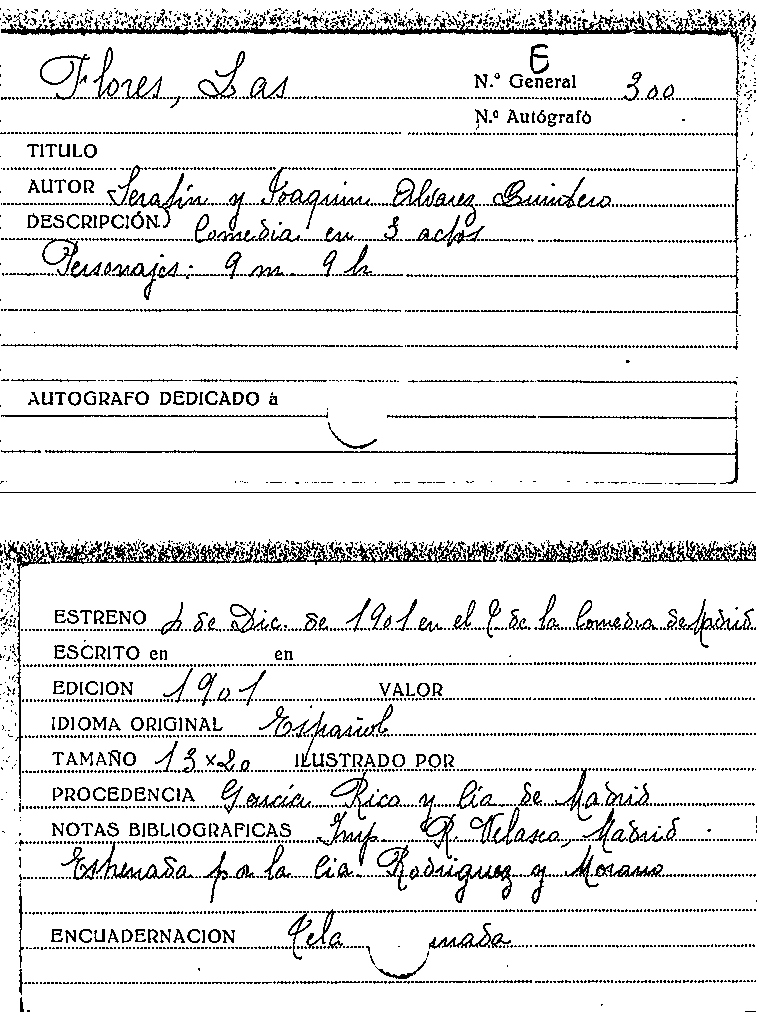 E
Flores, Las N.º General 300
N.º Autógrafo
TITULO
AUTOR Serafín y Joaquin Alvarez Quintero
DESCRIPCIÓN Comedia en 3 actos
Personajes: 9 m. 9 h
AUTOGRAFO DEDICADO à
ESTRENO de Dic. de 1901 en el T. de la Comedia de Madrid
ESCRITO en en
EDICION 1901 VALOR
IDIOMA ORIGINAL Español
TAMAÑO 13x20 ILUSTRADO POR
PROCEDENCIA García Rico y Cía de Madrid
NOTAS BIBLIOGRAFICAS Imp. R. Velasco, Madrid.
Estrenada por la Cia. Rodriguez y Morano
ENCUADERNACION Tela